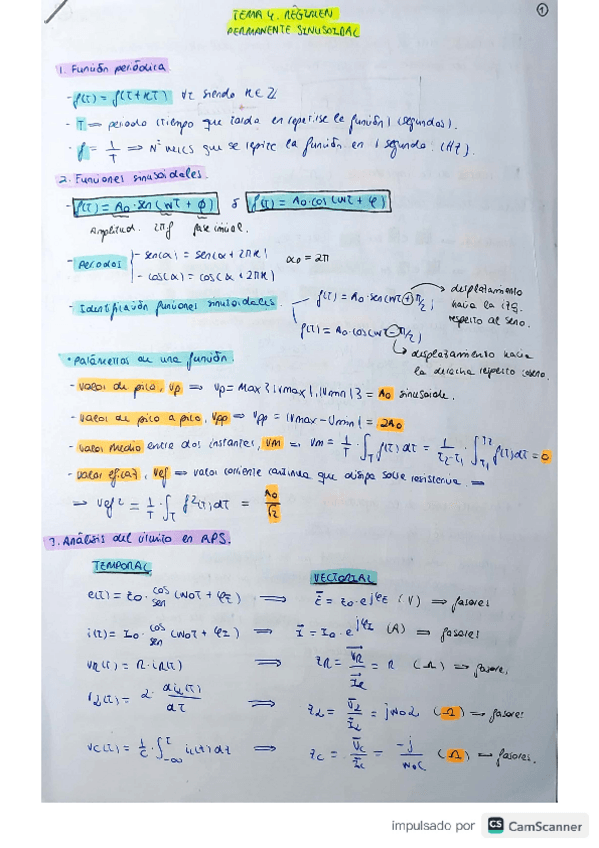 TEMA 4. RÉGIMEN
PERMANENTE SINUSOIDAL
1
1. Función periódica
- f(t) = f(t+kT) ∀t siendo k∈Z
- T = periodo (tiempo que tarda en repetirse la función) (segundos).
- f = 1/T => Nº veces que se repite la función en 1 segundo (Hz).
2. Funciones sinusoidales.
- f(t) = A0·sen(wt + ϕ) ó f(t) = A0·cos(wt + φ)
Amplitud. 2πf fase inicial.
- Periodos - sen(α) = sen(α + 2πk) αp = 2π
- cos(α) = cos(α + 2πk)
- Identificación funciones sinusoidales. f(t) = A0·sen(wt + π/2) desplazamiento hacia la izq. respecto al seno.
f(t) = A0·cos(wt - π/2) desplazamiento hacia la derecha respecto coseno.
· Parámetros de una función.
- Valor de pico, Vp => Vp = Max{|Vmax|,|Vmin|} = A0 sinusoide.
- Valor de pico a pico, Vpp => Vpp = |Vmax - Vmin| = 2A0
- Valor medio entre dos instantes, Vm => Vm = 1/T · ∫T f(t) dt = 1/(T2-T1) · ∫T1 T2 f(t) dt = 0
- Valor eficaz, Vef => valor corriente continua que disipa sobre resistencia. =>
=> Vef² = 1/T ∫T f²(t) dt = A0/√2
3. Análisis del circuito en RPS.
TEMPORAL VECTORIAL
e(t) = E0· cos sen (w0t + φE) => E = E0·e^jφE (V) => fasores
i(t) = I0· cos sen (w0t + φI) => I = I0·e^jφI (A) => fasores
VR(t) = R·iR(t) => ZR = VR/IR = R (Ω) => fasores.
VL(t) = L· diL(t)/dt => ZL = VL/IL = jw0L (Ω) => fasores
VC(t) = 1/C · ∫-∞ t iC(t) dt => ZC = VC/IC = -j/w0C (Ω) => fasores.
impulsado por CS CamScanner